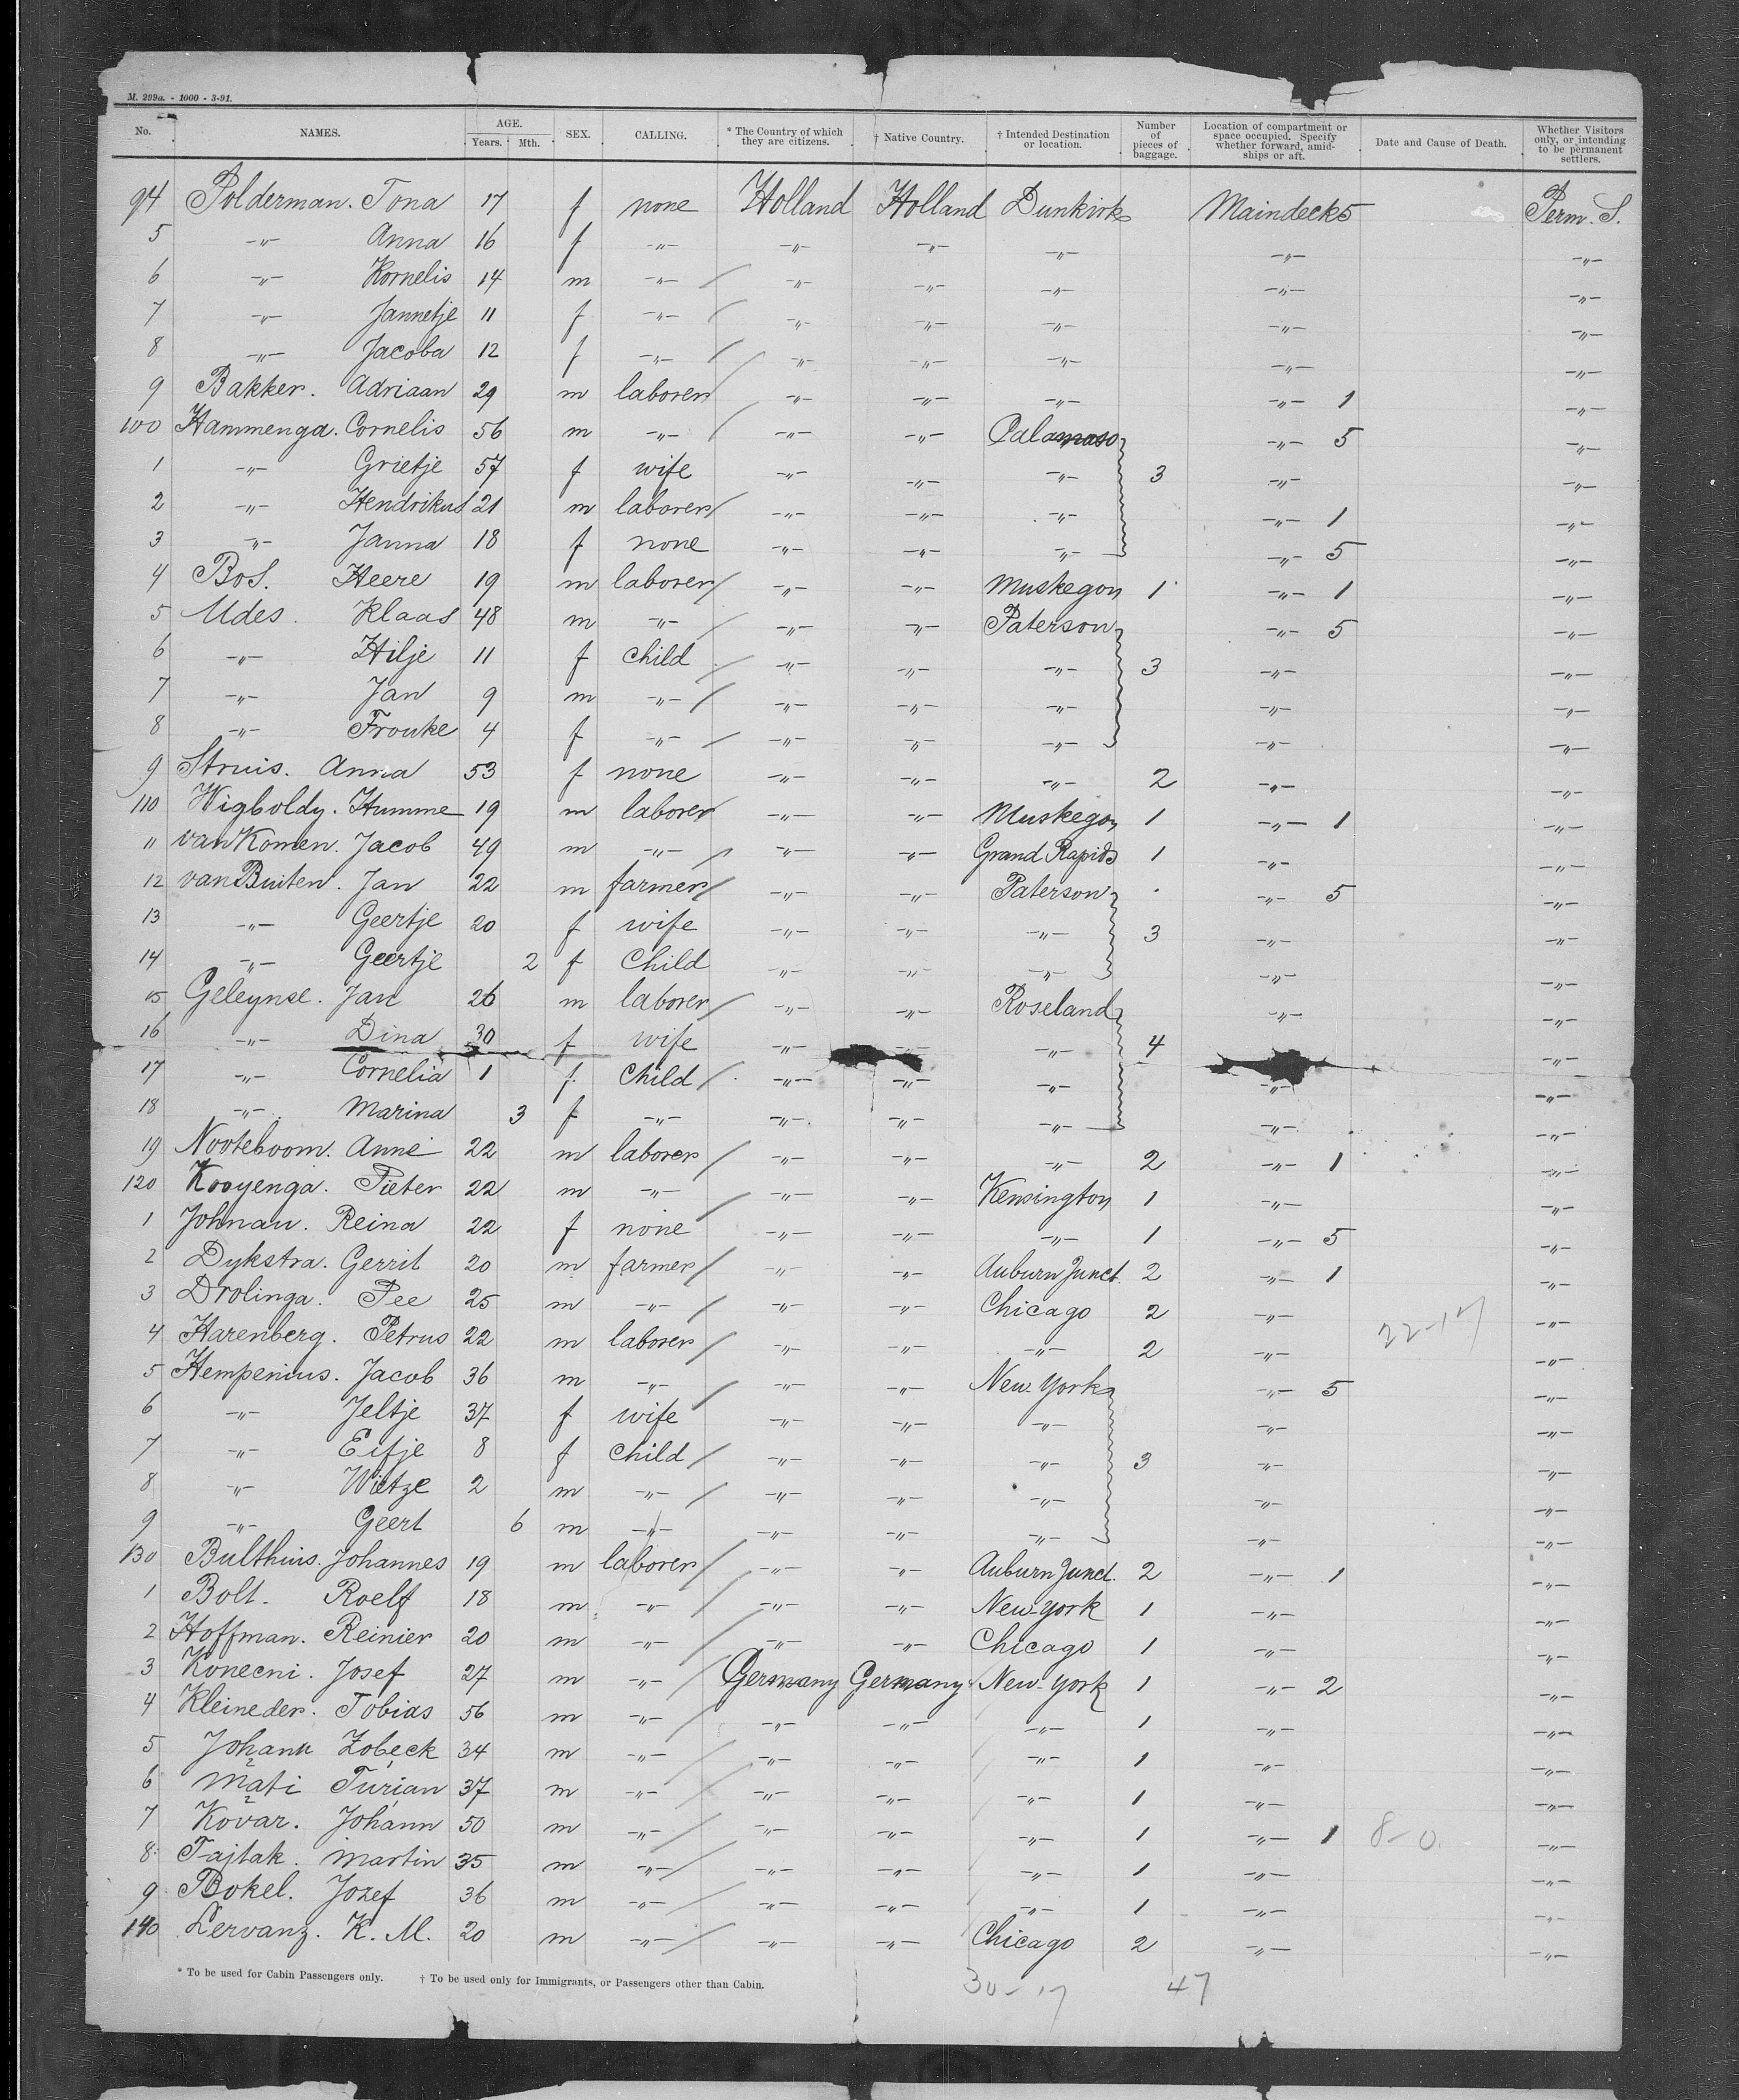 M. 299a. - 1000 - 3-91.
No. NAMES. AGE. Years. Mth. SEX. CALLING. * The Country of which they are citizens. † Native Country. † Intended Destination or location. Number of pieces of baggage. Location of compartment or space occupied. Specify whether forward, amidships or aft. Date and Cause of Death. Whether Visitors only, or intending to be permanent settlers.
94 Polderman. Tona 17 f none Holland Holland Dunkirk Maindeck 5 Perm. S.
5 -〃- Anna 16 f -〃- -〃- -〃- -〃- -〃- -〃-
6 -〃- Kornelis 14 m -〃- -〃- -〃- -〃- -〃- -〃-
7 -〃- Jannetje 11 f -〃- -〃- -〃- -〃- -〃- -〃-
8 -〃- Jacoba 12 f -〃- -〃- -〃- -〃- -〃- -〃-
9 Bakker. Adriaan 29 m laborer -〃- -〃- -〃- -〃- 1 -〃-
100 Hammenga. Cornelis 56 m -〃- -〃- -〃- -〃- 5 -〃-
1 -〃- Grietje 57 f wife -〃- -〃- -〃- 3 -〃- -〃-
2 -〃- Hendrikus 21 m laborer -〃- -〃- -〃- -〃- 1 -〃-
3 -〃- Janna 18 f none -〃- -〃- -〃- -〃- 5 -〃-
4 Bos. Heere 19 m laborer -〃- -〃- Muskegon 1 -〃- 1 -〃-
5 Udes. Klaas 48 m -〃- -〃- -〃- Paterson -〃- 5 -〃-
6 -〃- Hilje 11 f child -〃- -〃- -〃- 3 -〃- -〃-
7 -〃- Jan 9 m -〃- -〃- -〃- -〃- -〃- -〃-
8 -〃- Frouke 4 f -〃- -〃- -〃- -〃- -〃- -〃-
9 Struis. Anna 53 f none -〃- -〃- -〃- 2 -〃- -〃-
110 Wigboldy. Humme 19 m laborer -〃- -〃- Muskegon 1 -〃- 1 -〃-
11 van Komen. Jacob 49 m -〃- -〃- -〃- Grand Rapids 1 -〃- -〃-
12 van Buiten. Jan 22 m farmer -〃- -〃- Paterson -〃- 5 -〃-
13 -〃- Geertje 20 f wife -〃- -〃- -〃- 3 -〃- -〃-
14 -〃- Geertje 2 f Child -〃- -〃- -〃- -〃- -〃-
15 Geleynse. Jan 26 m laborer -〃- -〃- Roseland -〃- -〃-
16 -〃- Dina 30 f wife -〃- -〃- 4 -〃-
17 -〃- Cornelia 1 f Child -〃- -〃- -〃- -〃- -〃-
18 -〃- Marina 3 f -〃- -〃- -〃- -〃- -〃- -〃-
19 Nooteboom. Anne 22 m laborer -〃- -〃- -〃- 2 -〃- 1 -〃-
120 Kooyenga. Pieter 22 m -〃- -〃- -〃- Kensington 1 -〃- -〃-
1 Johnau. Reina 22 f none -〃- -〃- -〃- 1 -〃- 5 -〃-
2 Dykstra. Gerrit 20 m farmer -〃- -〃- Auburn Junct. 2 -〃- 1 -〃-
3 Drolinga. Pee 25 m -〃- -〃- -〃- Chicago 2 -〃- -〃-
4 Harenberg. Petrus 22 m laborer -〃- -〃- -〃- 2 -〃- 22-17 -〃-
5 Hempenius. Jacob 36 m -〃- -〃- -〃- New York -〃- 5 -〃-
6 -〃- Jeltje 37 f wife -〃- -〃- -〃- -〃- -〃-
7 -〃- Eifje 8 f child -〃- -〃- -〃- 3 -〃- -〃-
8 -〃- Wietze 2 m -〃- -〃- -〃- -〃- -〃- -〃-
9 -〃- Geert 6 m -〃- -〃- -〃- -〃- -〃- -〃-
130 Bulthuis. Johannes 19 m laborer -〃- -〃- Auburn Junct. 2 -〃- 1 -〃-
1 Bolt. Roelf 18 m -〃- -〃- -〃- New-York 1 -〃- -〃-
2 Hoffman. Reinier 20 m -〃- -〃- -〃- Chicago 1 -〃- -〃-
3 Konecni. Josef 27 m -〃- Germany Germany New-York 1 -〃- 2 -〃-
4 Kleineder. Tobias 56 m -〃- -〃- -〃- -〃- 1 -〃- -〃-
5 Johann Zobeck 34 m -〃- -〃- -〃- -〃- 1 -〃- -〃-
6 Mati Turian 37 m -〃- -〃- -〃- -〃- 1 -〃- -〃-
7 Kovar. Johann 50 m -〃- -〃- -〃- -〃- 1 -〃- 1 8-0 -〃-
8 Tajtak. Martin 35 m -〃- -〃- -〃- -〃- 1 -〃- -〃-
9 Bokel. Jozef 36 m -〃- -〃- -〃- -〃- 1 -〃- -〃-
140 Lervanz. K. M. 20 m -〃- -〃- -〃- Chicago 2 -〃- -〃-
* To be used for Cabin Passengers only. † To be used only for Immigrants, or Passengers other than Cabin.
30-17 47